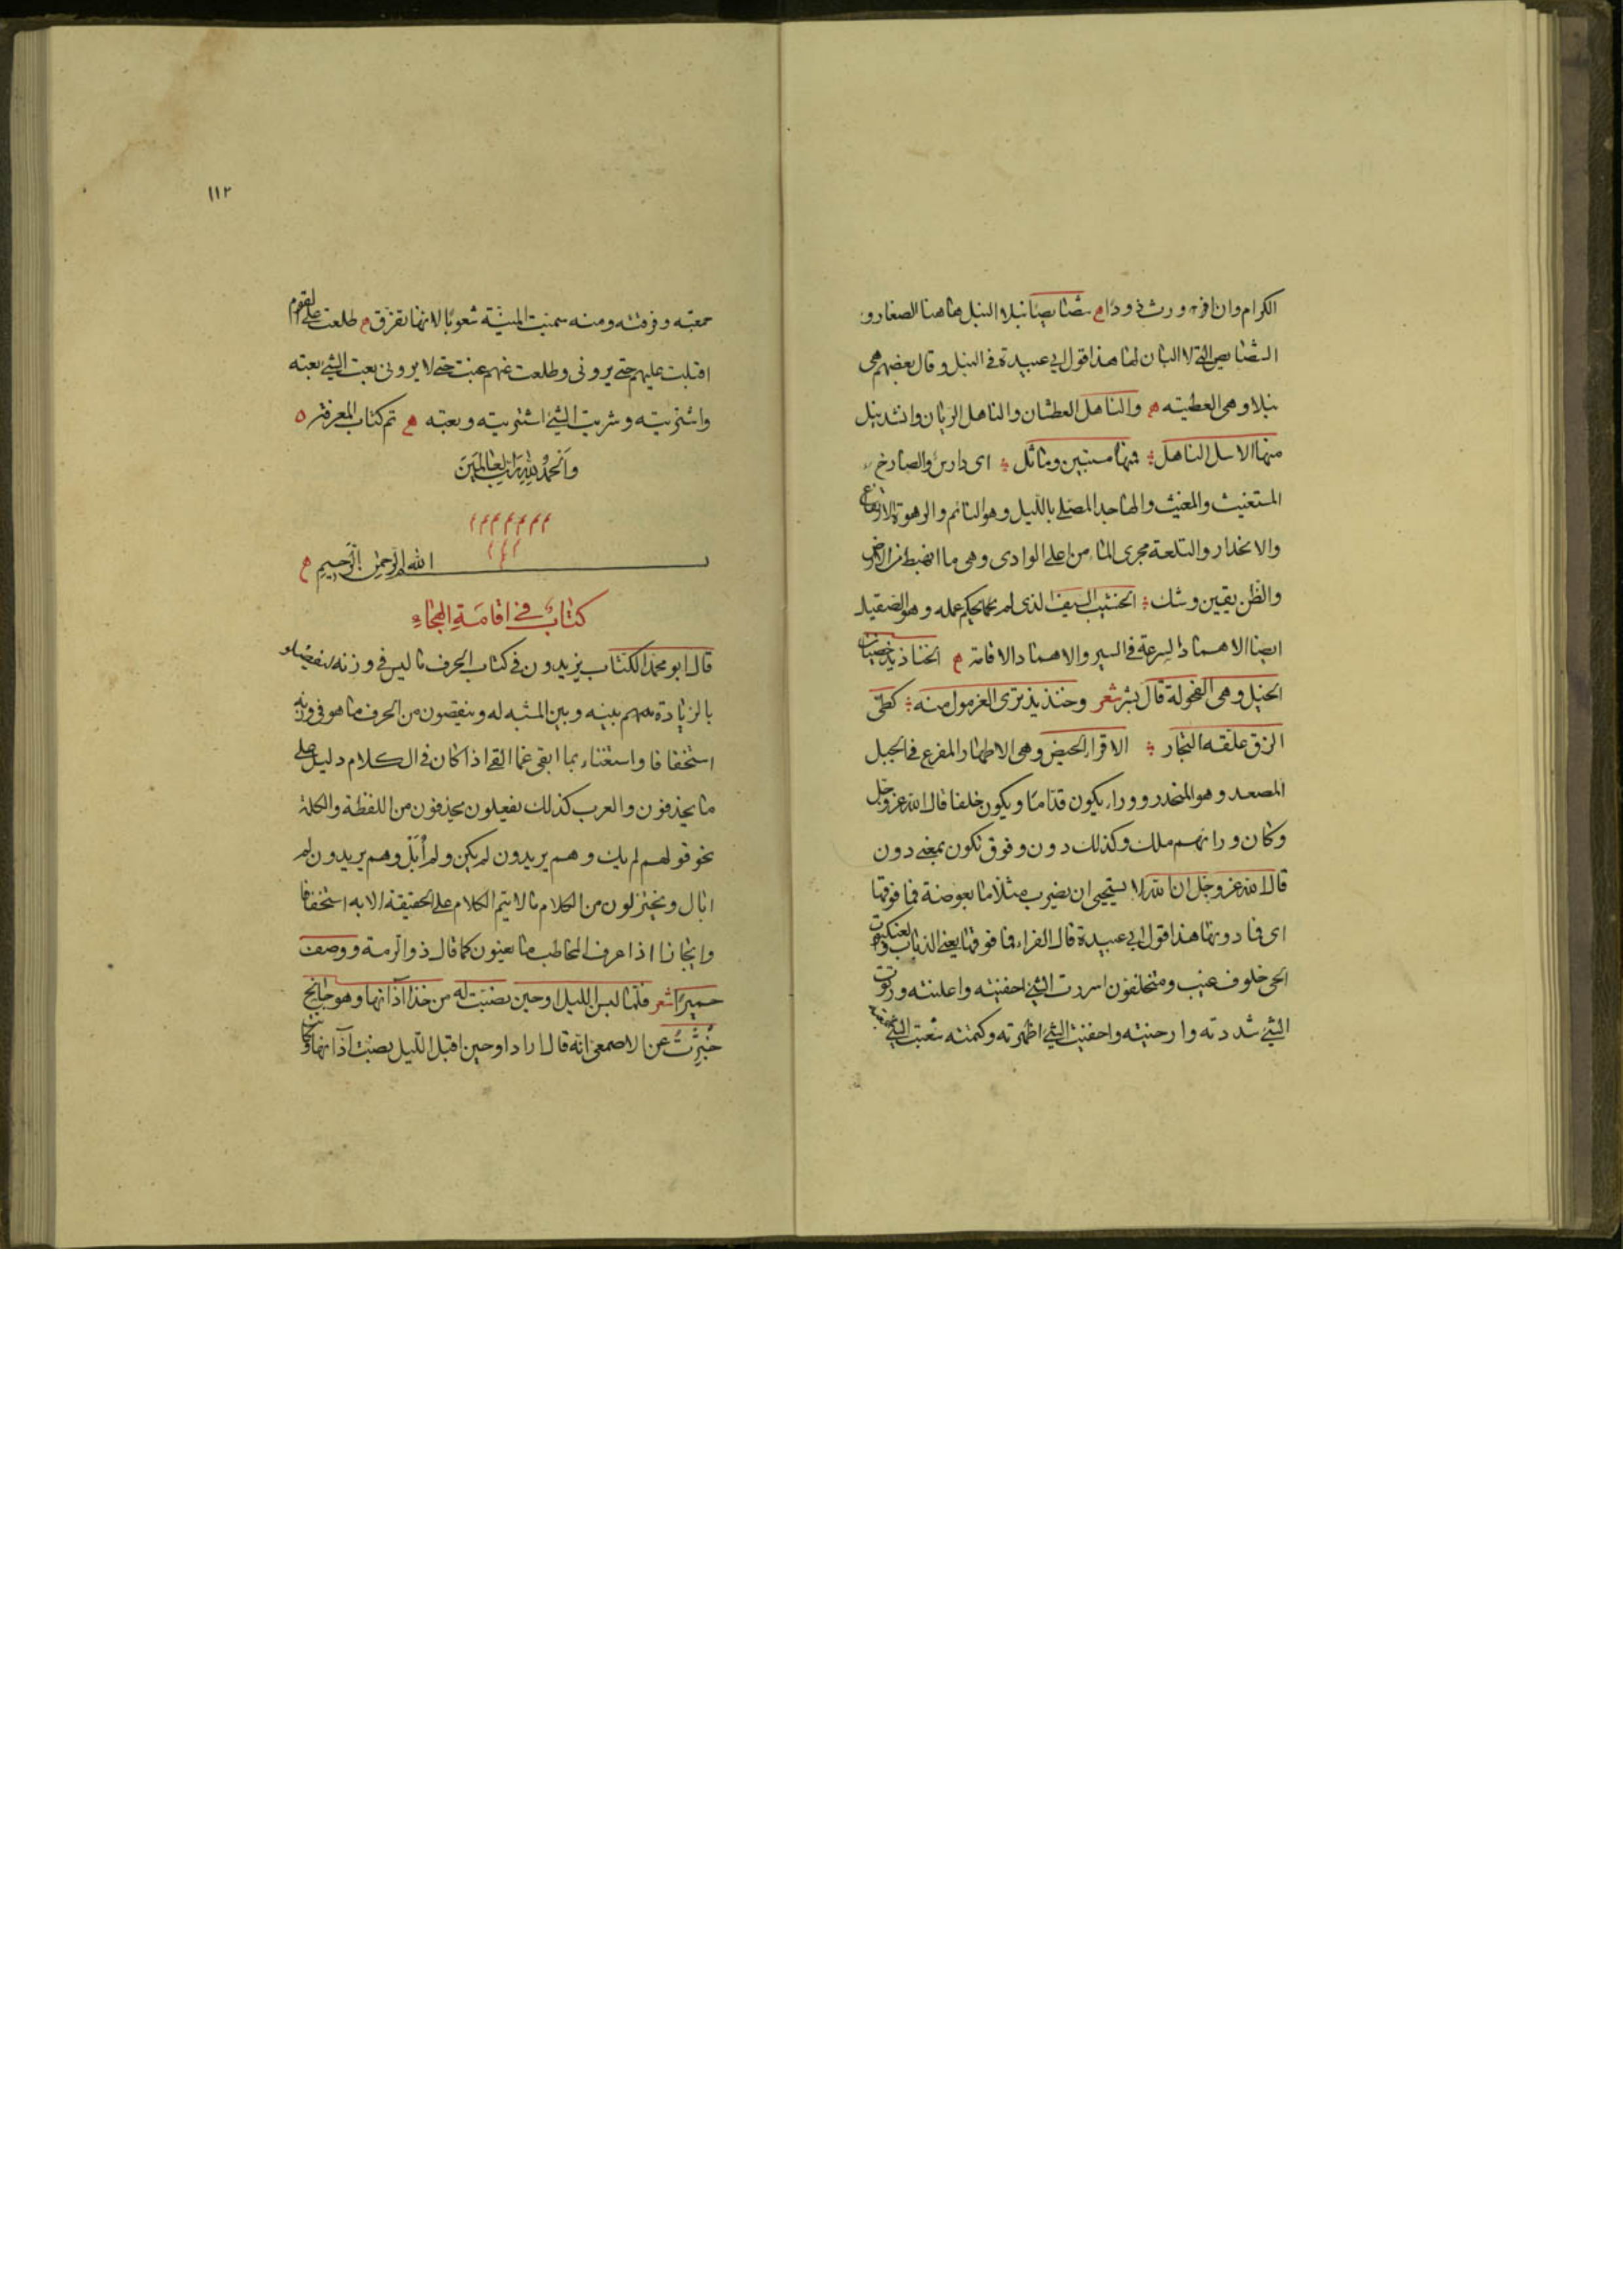 الكرام وان افرح و رث ذودا شصائصا نبلا النبل هاهنا الصغار و
الشصايص التي لا البان لها هذا قول ابي عبيدة في النبل وقال بعضهم هى
نبلا وهى العطيته والناهل العطشان والناهل الريان وانشد ينهل
منها الاسل الناهل فمنها مستبين وماثل اى دارس والصارخ
المستغيث والمغيث والهاجد المصلى بالليل وهو النائم والرهوة الارتفاع
والانحدار والتلعة مجرى الماء من اعلى الوادى وهى ما انهبط من الارض
والظن يقين وشك الخشيب السيف الذى لم يحكم عمله وهو الصقيل
ايضا الاهماد السرعة فى السير والاهماد الاقامة الخناذيذ خصيان
الخيل وهى الفحولة قال بشر شعر وخنذيذ ترى الغرمول منه كطى
الزق علقه التجار الاقراء الحيض وهى الاطهار المفرع فى الجبل
المصعد وهو المنحدر ووراء يكون قداما ويكون خلفا قال الله عز وجل
وكان وراءهم ملك وكذلك دون وفوق تكون بمعنى دون
قال الله عز وجل ان الله لا يستحيى ان يضرب مثلا ما بعوضة فما فوقها
اى فما دونها هذا قول ابي عبيدة قال الفراء فما فوقها يعنى الذباب والعنكبوت
الحى خلوف غيب ومتخلفون اسررت الشئ اخفيته واعلنته ورتوت
الشئ شددته وارخيته واخفيت الشئ اظهرته وكتمته شعبت الشئ
١١٢
جمعته وفرقته ومنه سميت المنية شعوبا لانها تفرق طلعت على القوم
اقبلت عليهم حتى يرونى وطلعت عنهم غبت حتى لا يرونى بعت الشئ بعته
واشتريته وشريت الشئ اشتريته وبعته تم كتاب المعرفة
والحمد لله رب العالمين
بسم الله الرحمن الرحيم
كتاب فى اقامة الهجاء
قال ابو محمد الكتاب يزيدون فى كتاب الحرف ما ليس فى وزنه ليفصلوا
بالزيادة بينه وبين المشبه له وينقصون من الحرف ما هو فى وزنه
استخفافا واستغناء بما ابقى عما القى اذا كان فى الكلام دليل على
ما يحذفون والعرب كذلك يفعلون يحذفون من اللفظة والكلمة
نحو قولهم لم يك وهم يريدون لم يكن ولم أبل وهم يريدون لم
ابال ويختزلون من الكلام ما لا يتم الكلام على الحقيقة الا به استخفافا
وايجازا اذا عرف المخاطب ما يعنون كما قال ذو الرمة ووصف
حميرا شعر فلما لبسن الليل او حين نصبت له من خذا آذانها وهو جانح
خبرت عن الاصمعى انه قال اراد او حين اقبل الليل نصبت آذانها وكانت